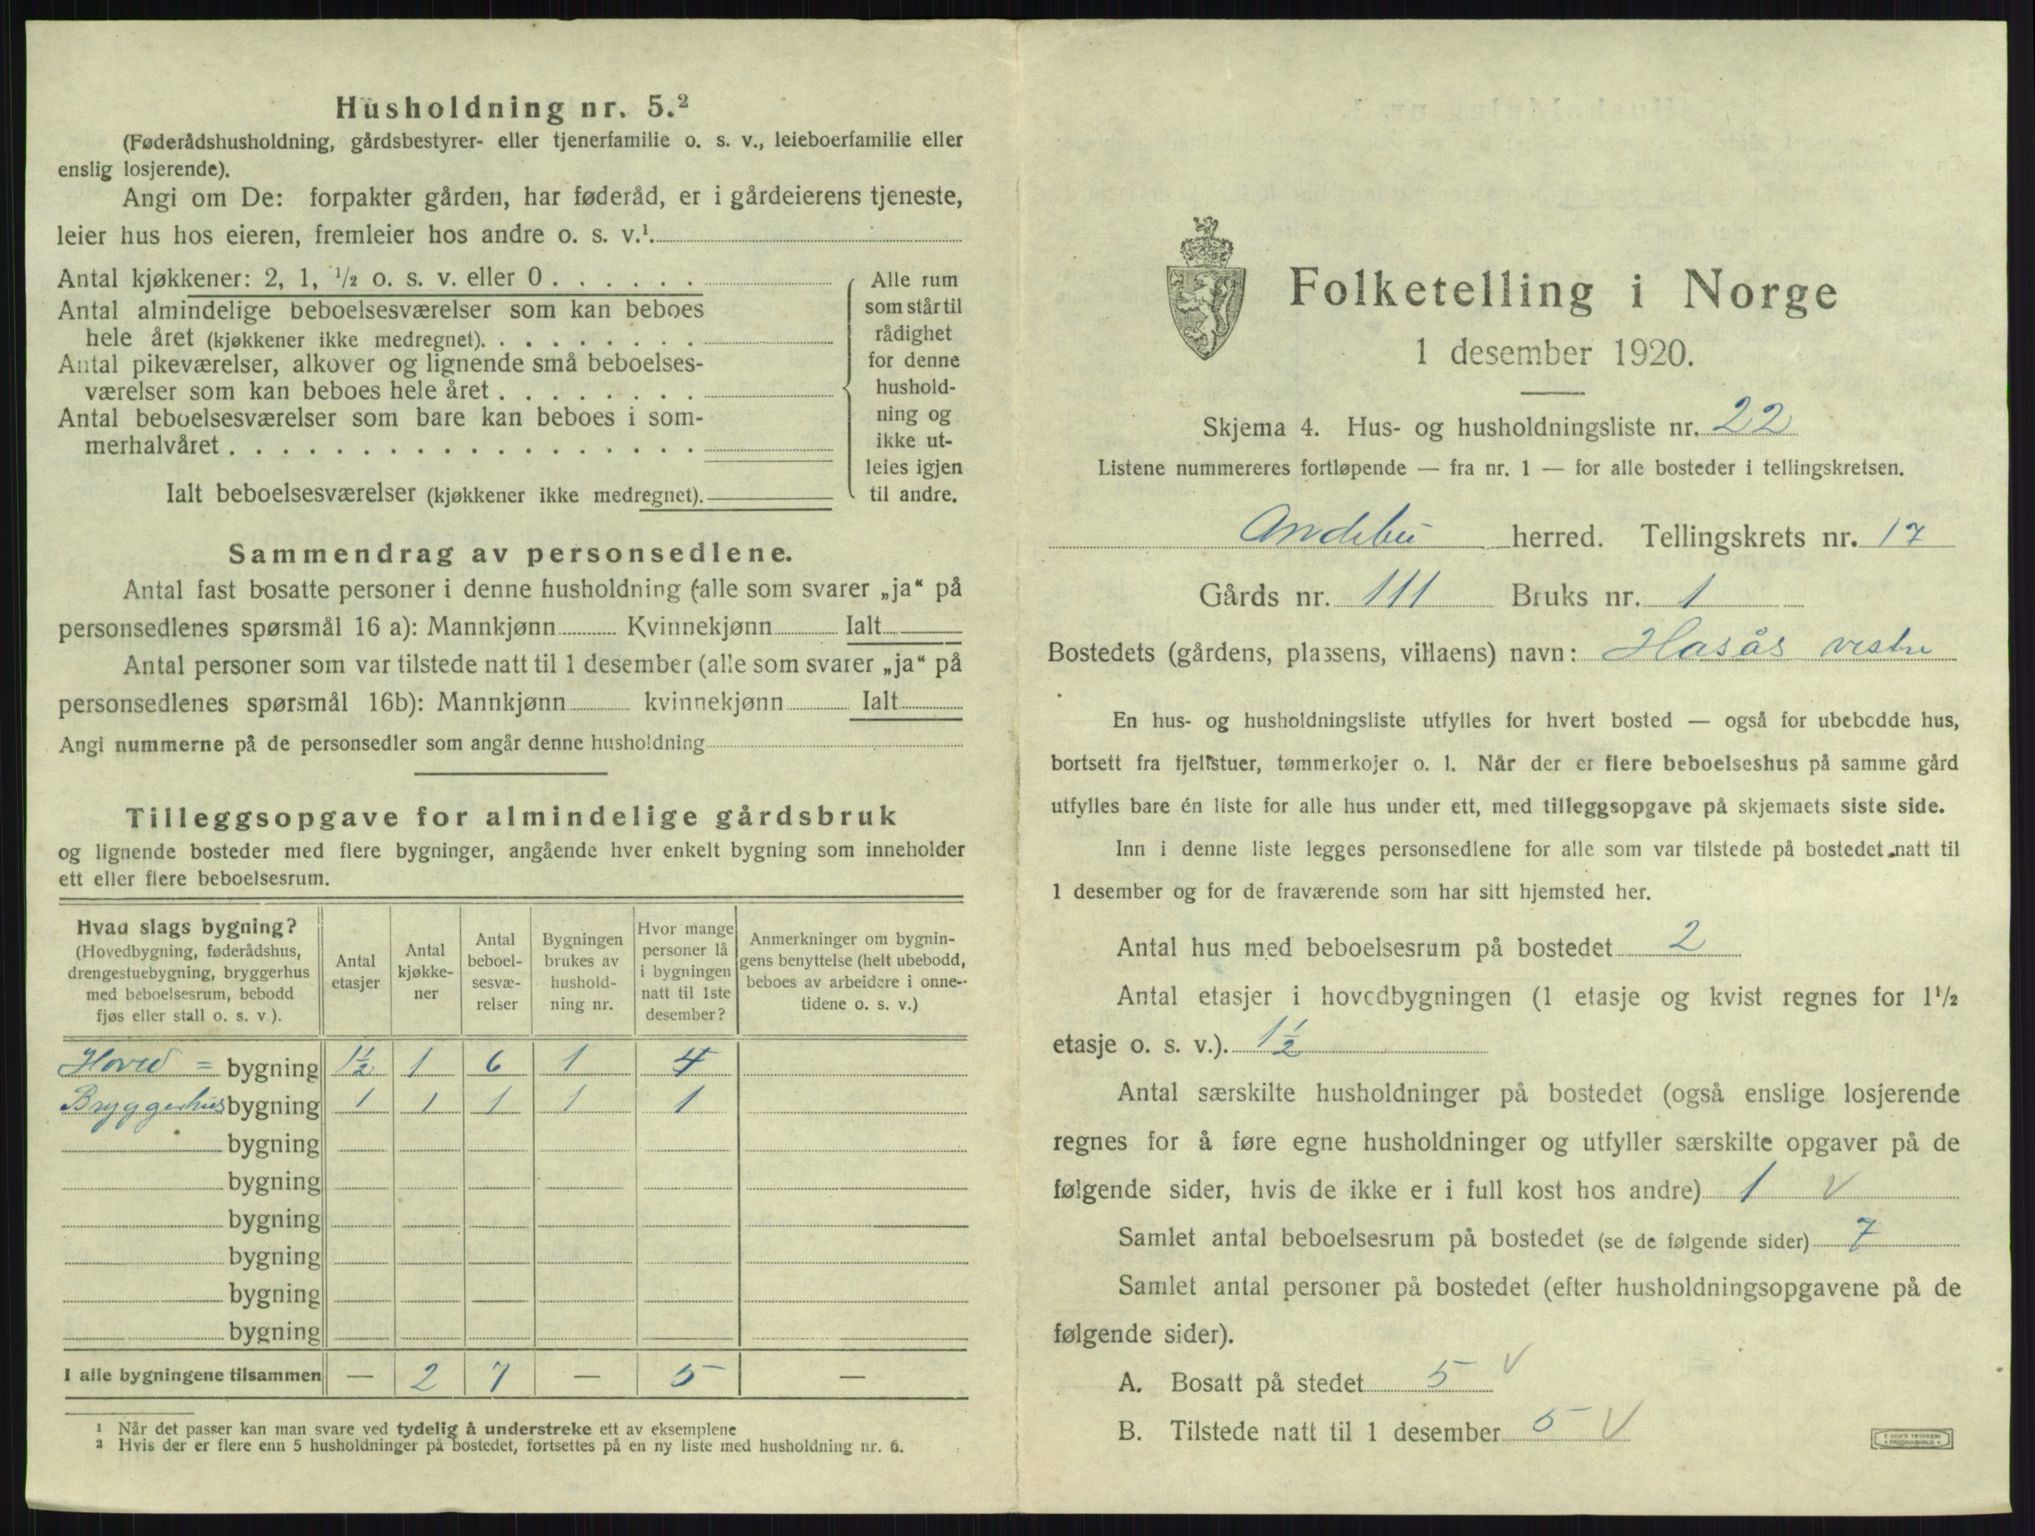 Husholdning nr. 5.²
(Føderådshusholdning, gårdsbestyrer- eller tjenerfamilie o. s. v., leieboerfamilie eller
enslig losjerende).
Angi om De: forpakter gården, har føderåd, er i gårdeierens tjeneste,
leier hus hos eieren, fremleier hos andre o. s. v.¹
Antal kjøkkener: 2, 1, ½ o. s. v. eller 0 . . . . . .
Antal almindelige beboelsesværelser som kan beboes
hele året (kjøkkener ikke medregnet). . . . . . . . .
Antal pikeværelser, alkover og lignende små beboelses-
værelser som kan beboes hele året . . . . . . . .
Antal beboelsesværelser som bare kan beboes i som-
merhalvåret . . . . . . . . . . . . . . . . . .
Ialt beboelsesværelser (kjøkkener ikke medregnet).
Alle rum
som står til
rådighet
for denne
hushold-
ning og
ikke ut-
leies igjen
til andre.
Sammendrag av personsedlene.
Antal fast bosatte personer i denne husholdning (alle som svarer „ja“ på
personsedlenes spørsmål 16 a): Mannkjønn Kvinnekjønn Ialt
Antal personer som var tilstede natt til 1 desember (alle som svarer „ja“ på
personsedlenes spørsmål 16b): Mannkjønn kvinnekjønn Ialt
Angi nummerne på de personsedler som angår denne husholdning
Tilleggsopgave for almindelige gårdsbruk
og lignende bosteder med flere bygninger, angående hver enkelt bygning som inneholder
ett eller flere beboelsesrum.
Hvad slags bygning?
(Hovedbygning, føderådshus,
drengestuebygning, bryggerhus
med beboelsesrum, bebodd
fjøs eller stall o. s. v.).
Antal
etasjer
Antal
kjøkke-
ner
Antal
beboel-
sesvæ-
relser
Bygningen
brukes av
hushold-
ning nr.
Hvor mange
personer lå
i bygningen
natt til 1ste
desember?
Anmerkninger om bygnin-
gens benyttelse (helt ubebodd,
beboes av arbeidere i onne-
tidene o. s. v.)
Hoved = bygning 1½ 1 6 1 4
Bryggerhus bygning 1 1 1 1 1
bygning
bygning
bygning
bygning
bygning
bygning
I alle bygningene tilsammen — 2 7 — 5 —
¹ Når det passer kan man svare ved tydelig å understreke ett av eksemplene
² Hvis der er flere enn 5 husholdninger på bostedet, fortsettes på en ny liste med husholdning nr. 6.
Folketelling i Norge
1 desember 1920.
Skjema 4. Hus- og husholdningsliste nr. 22
Listene nummereres fortløpende — fra nr. 1 — for alle bosteder i tellingskretsen.
Andebu herred. Tellingskrets nr. 17
Gårds nr. 111 Bruks nr. 1
Bostedets (gårdens, plassens, villaens) navn: Hasås vestre
En hus- og husholdningsliste utfylles for hvert bosted — også for ubebodde hus,
bortsett fra fjellstuer, tømmerkojer o. l. Når der er flere beboelseshus på samme gård
utfylles bare én liste for alle hus under ett, med tilleggsopgave på skjemaets siste side.
Inn i denne liste legges personsedlene for alle som var tilstede på bostedet natt til
1 desember og for de fraværende som har sitt hjemsted her.
Antal hus med beboelsesrum på bostedet 2
Antal etasjer i hovedbygningen (1 etasje og kvist regnes for 1½
etasje o. s. v.). 1½
Antal særskilte husholdninger på bostedet (også enslige losjerende
regnes for å føre egne husholdninger og utfyller særskilte opgaver på de
følgende sider, hvis de ikke er i full kost hos andre) 1 V
Samlet antal beboelsesrum på bostedet (se de følgende sider) 7
Samlet antal personer på bostedet (efter husholdningsopgavene på de
følgende sider).
A. Bosatt på stedet 5 V
B. Tilstede natt til 1 desember 5 V